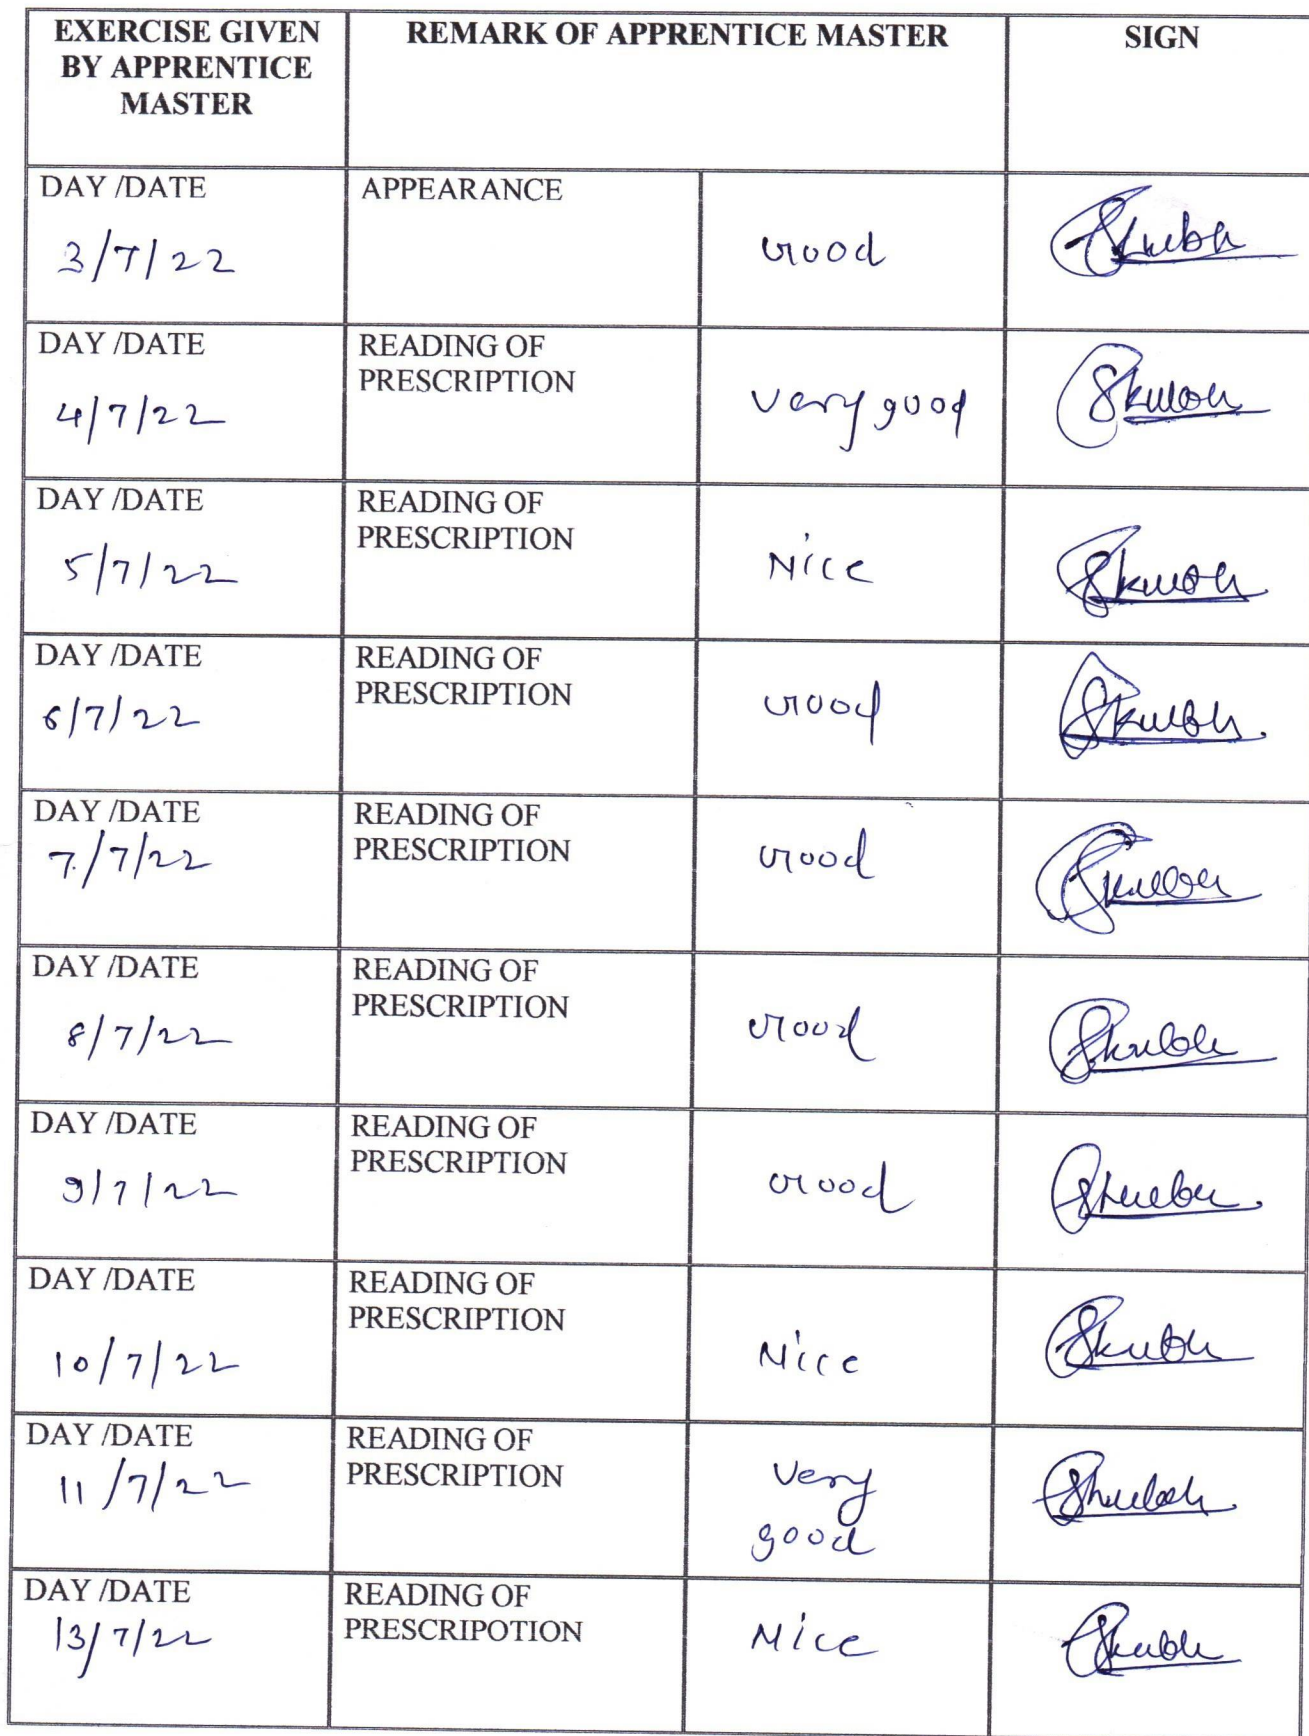 EXERCISE GIVEN
BY APPRENTICE
MASTER
REMARK OF APPRENTICE MASTER
SIGN
DAY /DATE
3/7/22
APPEARANCE
Good
DAY /DATE
4/7/22
READING OF
PRESCRIPTION
Very good
DAY /DATE
5/7/22
READING OF
PRESCRIPTION
Nice
DAY /DATE
6/7/22
READING OF
PRESCRIPTION
Good
DAY /DATE
7/7/22
READING OF
PRESCRIPTION
Good
DAY /DATE
8/7/22
READING OF
PRESCRIPTION
Good
DAY /DATE
9/7/22
READING OF
PRESCRIPTION
Good
DAY /DATE
10/7/22
READING OF
PRESCRIPTION
Nice
DAY /DATE
11/7/22
READING OF
PRESCRIPTION
Very
good
DAY /DATE
13/7/22
READING OF
PRESCRIPOTION
Nice